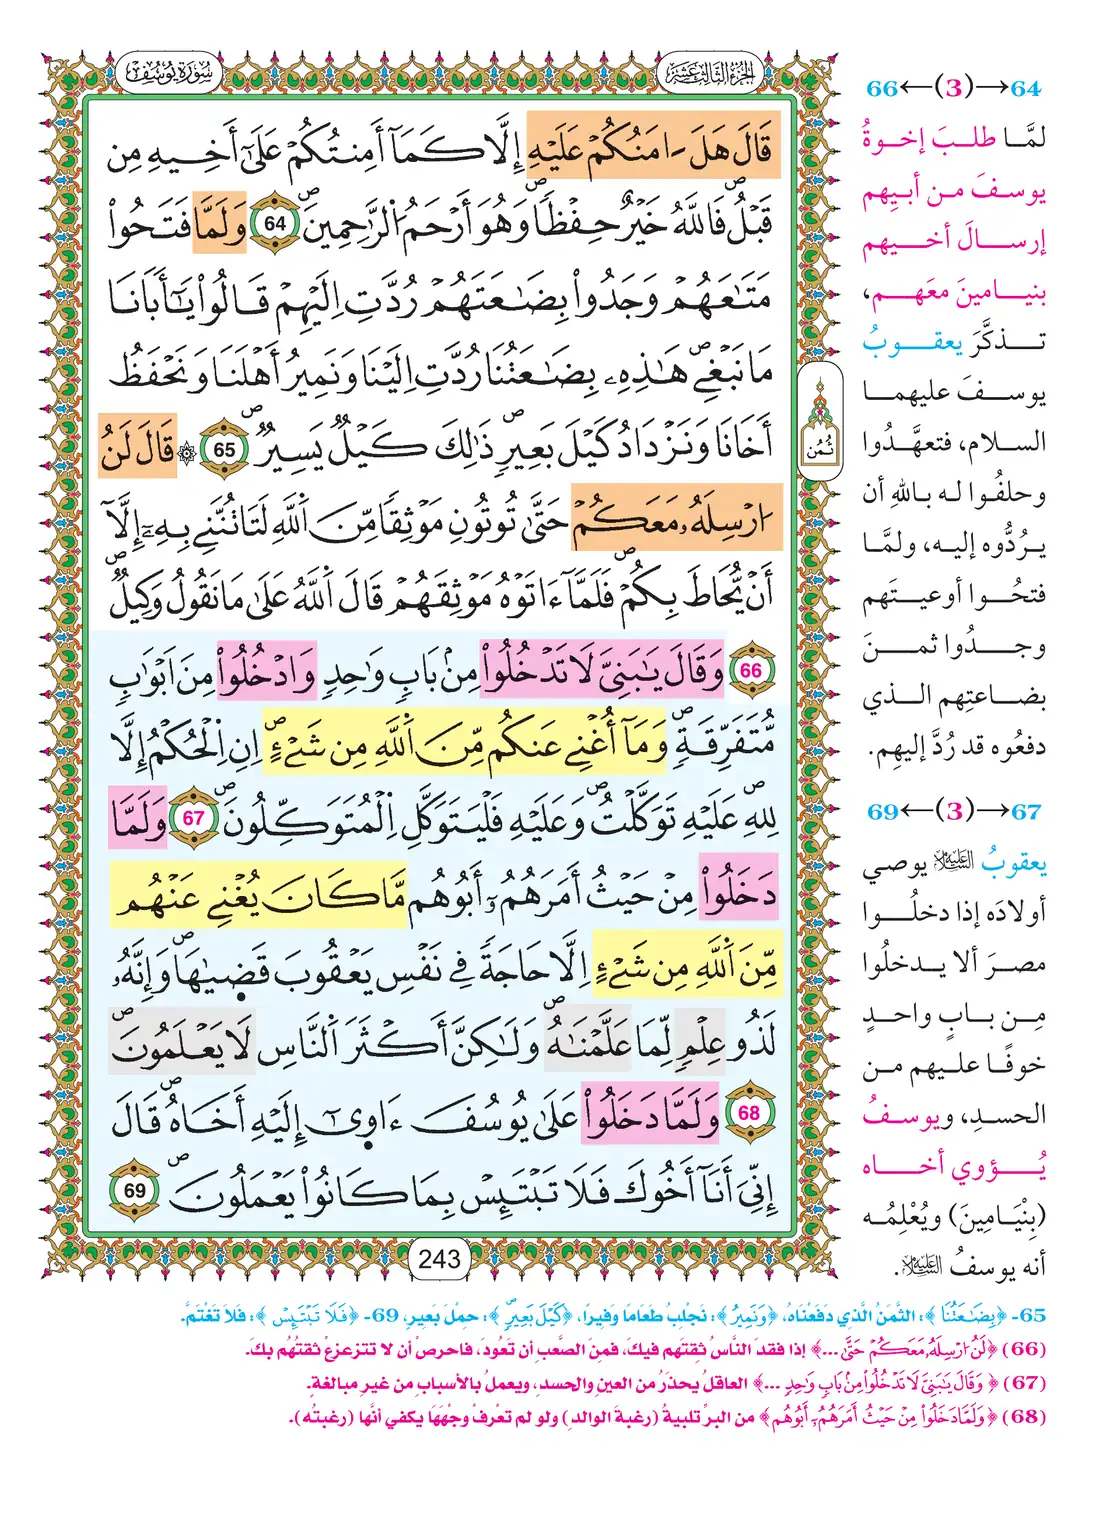 سُورَةُ يُوسُفَ
الجُزْءُ الثَّالِثَ عَشَرَ
قَالَ هَلَ اٰمَنُكُمْ عَلَيْهِ إِلَّا كَمَآ أَمِنتُكُمْ عَلَىٰٓ أَخِيهِ مِن
قَبْلُ فَاللَّهُ خَيْرٌ حِفْظًا وَهُوَ أَرْحَمُ الرَّٰحِمِينَ 64 وَلَمَّا فَتَحُواْ
مَتَٰعَهُمْ وَجَدُواْ بِضَٰعَتَهُمْ رُدَّتِ اِلَيْهِمْ قَالُواْ يَٰٓأَبَانَا
مَا نَبْغِے هَٰذِهِۦ بِضَٰعَتُنَا رُدَّتِ اِلَيْنَا وَنَمِيرُ أَهْلَنَا وَنَحْفَظُ
أَخَانَا وَنَزْدَادُ كَيْلَ بَعِيرٍ ذَٰلِكَ كَيْلٌ يَسِيرٌ 65 ۞ قَالَ لَنُ
ا۟رْسِلَهُۥ مَعَكُمْ حَتَّىٰ تُوتُونِ مَوْثِقًا مِّنَ اَللَّهِ لَتَاتُنَّنِے بِهِۦٓ إِلَّآ
أَنْ يُّحَاطَ بِكُمْ فَلَمَّآ ءَاتَوْهُ مَوْثِقَهُمْ قَالَ اَللَّهُ عَلَىٰ مَا نَقُولُ وَكِيلٌ
66 وَقَالَ يَٰبَنِيَّ لَا تَدْخُلُواْ مِنۢ بَابٍ وَٰحِدٍ وَادْخُلُواْ مِنَ اَبْوَٰبٍ
مُّتَفَرِّقَةٍ وَمَآ أُغْنِے عَنكُم مِّنَ اَللَّهِ مِن شَےْءٍ اِنِ اِلْحُكْمُ إِلَّا
لِلهِ عَلَيْهِ تَوَكَّلْتُ وَعَلَيْهِ فَلْيَتَوَكَّلِ اِلْمُتَوَكِّلُونَ 67 وَلَمَّا
دَخَلُواْ مِنْ حَيْثُ أَمَرَهُمُۥٓ أَبُوهُم مَّا كَانَ يُغْنِے عَنْهُم
مِّنَ اَللَّهِ مِن شَےْءٍ اِلَّا حَاجَةً فِے نَفْسِ يَعْقُوبَ قَضَىٰهَا وَإِنَّهُۥ
لَذُو عِلْمٍ لِّمَا عَلَّمْنَٰهُ وَلَٰكِنَّ أَكْثَرَ اَلنَّاسِ لَا يَعْلَمُونَ
68 وَلَمَّا دَخَلُواْ عَلَىٰ يُوسُفَ ءَاوِىٰٓ إِلَيْهِ أَخَاهُ قَالَ
إِنِّيَ أَنَآ أَخُوكَ فَلَا تَبْتَئِسْ بِمَا كَانُواْ يَعْمَلُونَ 69
ثُمُن
243
64→(3)←66
لمَّا طلبَ إخوةُ
يوسفَ من أبيهم
إرسالَ أخيهم
بنيامينَ معَهم،
تذكَّرَ يعقوبُ
يوسفَ عليهما
السلام، فتعهَّدُوا
وحلفُوا له باللهِ أن
يردُّوه إليه، ولمَّا
فتحُوا أوعيتَهم
وجدُوا ثمنَ
بضاعتِهم الذي
دفعُوه قد رُدَّ إليهم.
67→(3)←69
يعقوبُ عليه السلام يوصي
أولادَه إذا دخلُوا
مصرَ ألا يدخلُوا
مِن بابٍ واحدٍ
خوفًا عليهم من
الحسدِ، ويوسفُ
يُؤوي أخاه
(بِنْيَامِينَ) ويُعْلِمُه
أنه يوسفُ عليه السلام.
65- ﴿بِضَٰعَتُنَا﴾: الثَّمَنُ الَّذِي دَفَعْنَاهُ، ﴿وَنَمِيرُ﴾: نَجْلِبُ طَعَامًا وَفِيرًا، ﴿كَيْلَ بَعِيرٍ﴾: حِمْلَ بَعِيرٍ، 69- ﴿فَلَا تَبْتَئِسْ﴾: فَلَا تَغْتَمَّ.
(66) ﴿لَنُ ا۟رْسِلَهُۥ مَعَكُمْ حَتَّىٰ ...﴾ إذا فقدَ النَّاسُ ثِقتَهم فيكَ، فمِنَ الصَّعبِ أن تَعُودَ، فاحرِصْ أن لا تتزعزعَ ثقتُهُم بك.
(67) ﴿وَقَالَ يَٰبَنِيَّ لَا تَدْخُلُواْ مِنۢ بَابٍ وَٰحِدٍ ...﴾ العاقلُ يحذَرُ من العينِ والحسدِ، ويعملُ بالأسبابِ من غيرِ مبالغةٍ.
(68) ﴿وَلَمَّا دَخَلُواْ مِنْ حَيْثُ أَمَرَهُمُۥٓ أَبُوهُم﴾ من البرِّ تلبيةُ (رغبةِ الوالد) ولو لم تعرفْ وجْهَهَا يكفي أنَّها (رغبتُه).